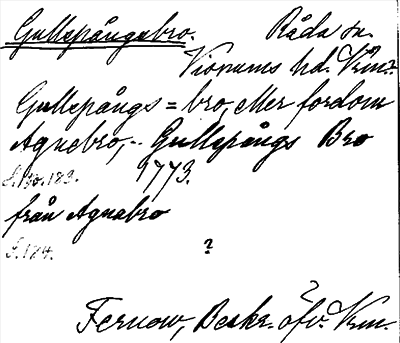 Gullspångsbro. Råda sn.
Visnums hd. Vrm.
Gullspångs=bro, eller fordom
Agnebro, -- Gullspångs Bro
S. 130. 183. 1773.
från Agnabro
S. 184. ?
Fernow, Beskr. öfv. Vrm.